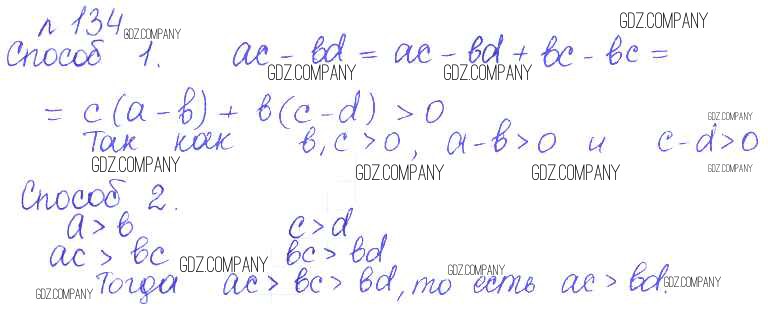 № 134 GDZ.COMPANY GDZ.COMPANY
Способ 1. ac - bd = ac - bd + bc - bc =
GDZ.COMPANY GDZ.COMPANY
= c(a - b) + b(c - d) > 0
GDZ.COMPANY
Так как b, c > 0, a - b > 0 и c - d > 0
GDZ.COMPANY GDZ.COMPANY GDZ.COMPANY GDZ.COMPANY
Способ 2.
a > b c > d
ac > bc bc > bd
GDZ.COMPANY GDZ.COMPANY
Тогда ac > bc > bd, то есть ac > bd.
GDZ.COMPANY GDZ.COMPANY